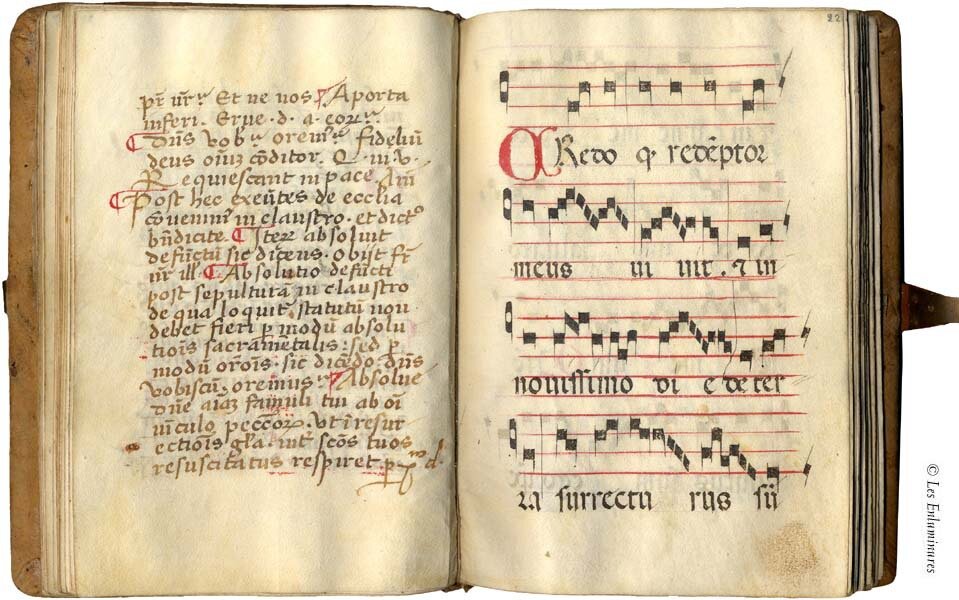 pr̄ nr̄ꝭ Et ne nos Aporta
inferi. Erue . d . a . eorꝝ.
Dn̄s vobꝭ oremꝰ. fideliū
deus oīuꝫ cōditor. Q . iii v.
Requiescant in pace Am̄
Post hec exeūtes de ecclīa
cōueniūt in claustro. et dictꝰ
bn̄dicite. Iterꝝ absoluit
defūctū sic dicens. Obijt fr̄
nr̄ ill̄. Absolutio defūcti
post sepulturā in claustro
de qua loquit̄ statutū non
debet fieri ꝑ modū absolu
tionis sacramētalis: sed ꝑ
modū orōis. sic dicēdo. dn̄s
vobiscū. oremus. Absolue
dn̄e aīaꝫ famuli tui ab oī
uīculo peccōrꝝ. vt ī resur
ectiōis gl̄a. int̄ scōs tuos
resuscitatus respiret. ꝑ
22
CRedo ꝙ redēptor
meus ui uit. ⁊ in
nouissimo di e de ter
ra surrectu rus sū
© Les Enluminures